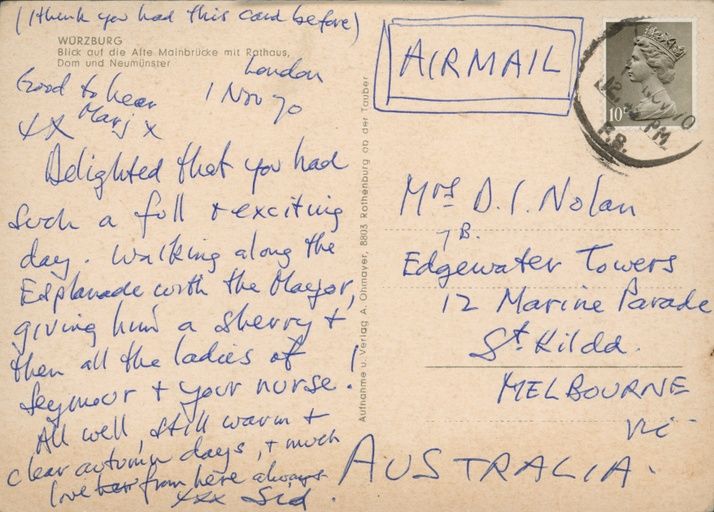 (I think you had this card before)
WÜRZBURG
Blick auf die Alte Mainbrücke mit Rathaus,
Dom und Neumünster
London
1 Nov 70
Good to hear
xx Marj x
Delighted that you had
such a full + exciting
day. Walking along the
Esplanade with the Mayor,
giving him a sherry +
then all the ladies of
Seymour + your nurse!
All well, still warm +
clear autumn days, + much
love from here always
xxx Sid.
Aufnahme u. Verlag A. Ohmayer, 8803 Rothenburg ob der Tauber
AIRMAIL
10
PM
Mrs D. I. Nolan
7 B.
Edgewater Towers
12 Marine Parade
St. Kilda.
MELBOURNE
Vic
AUSTRALIA.